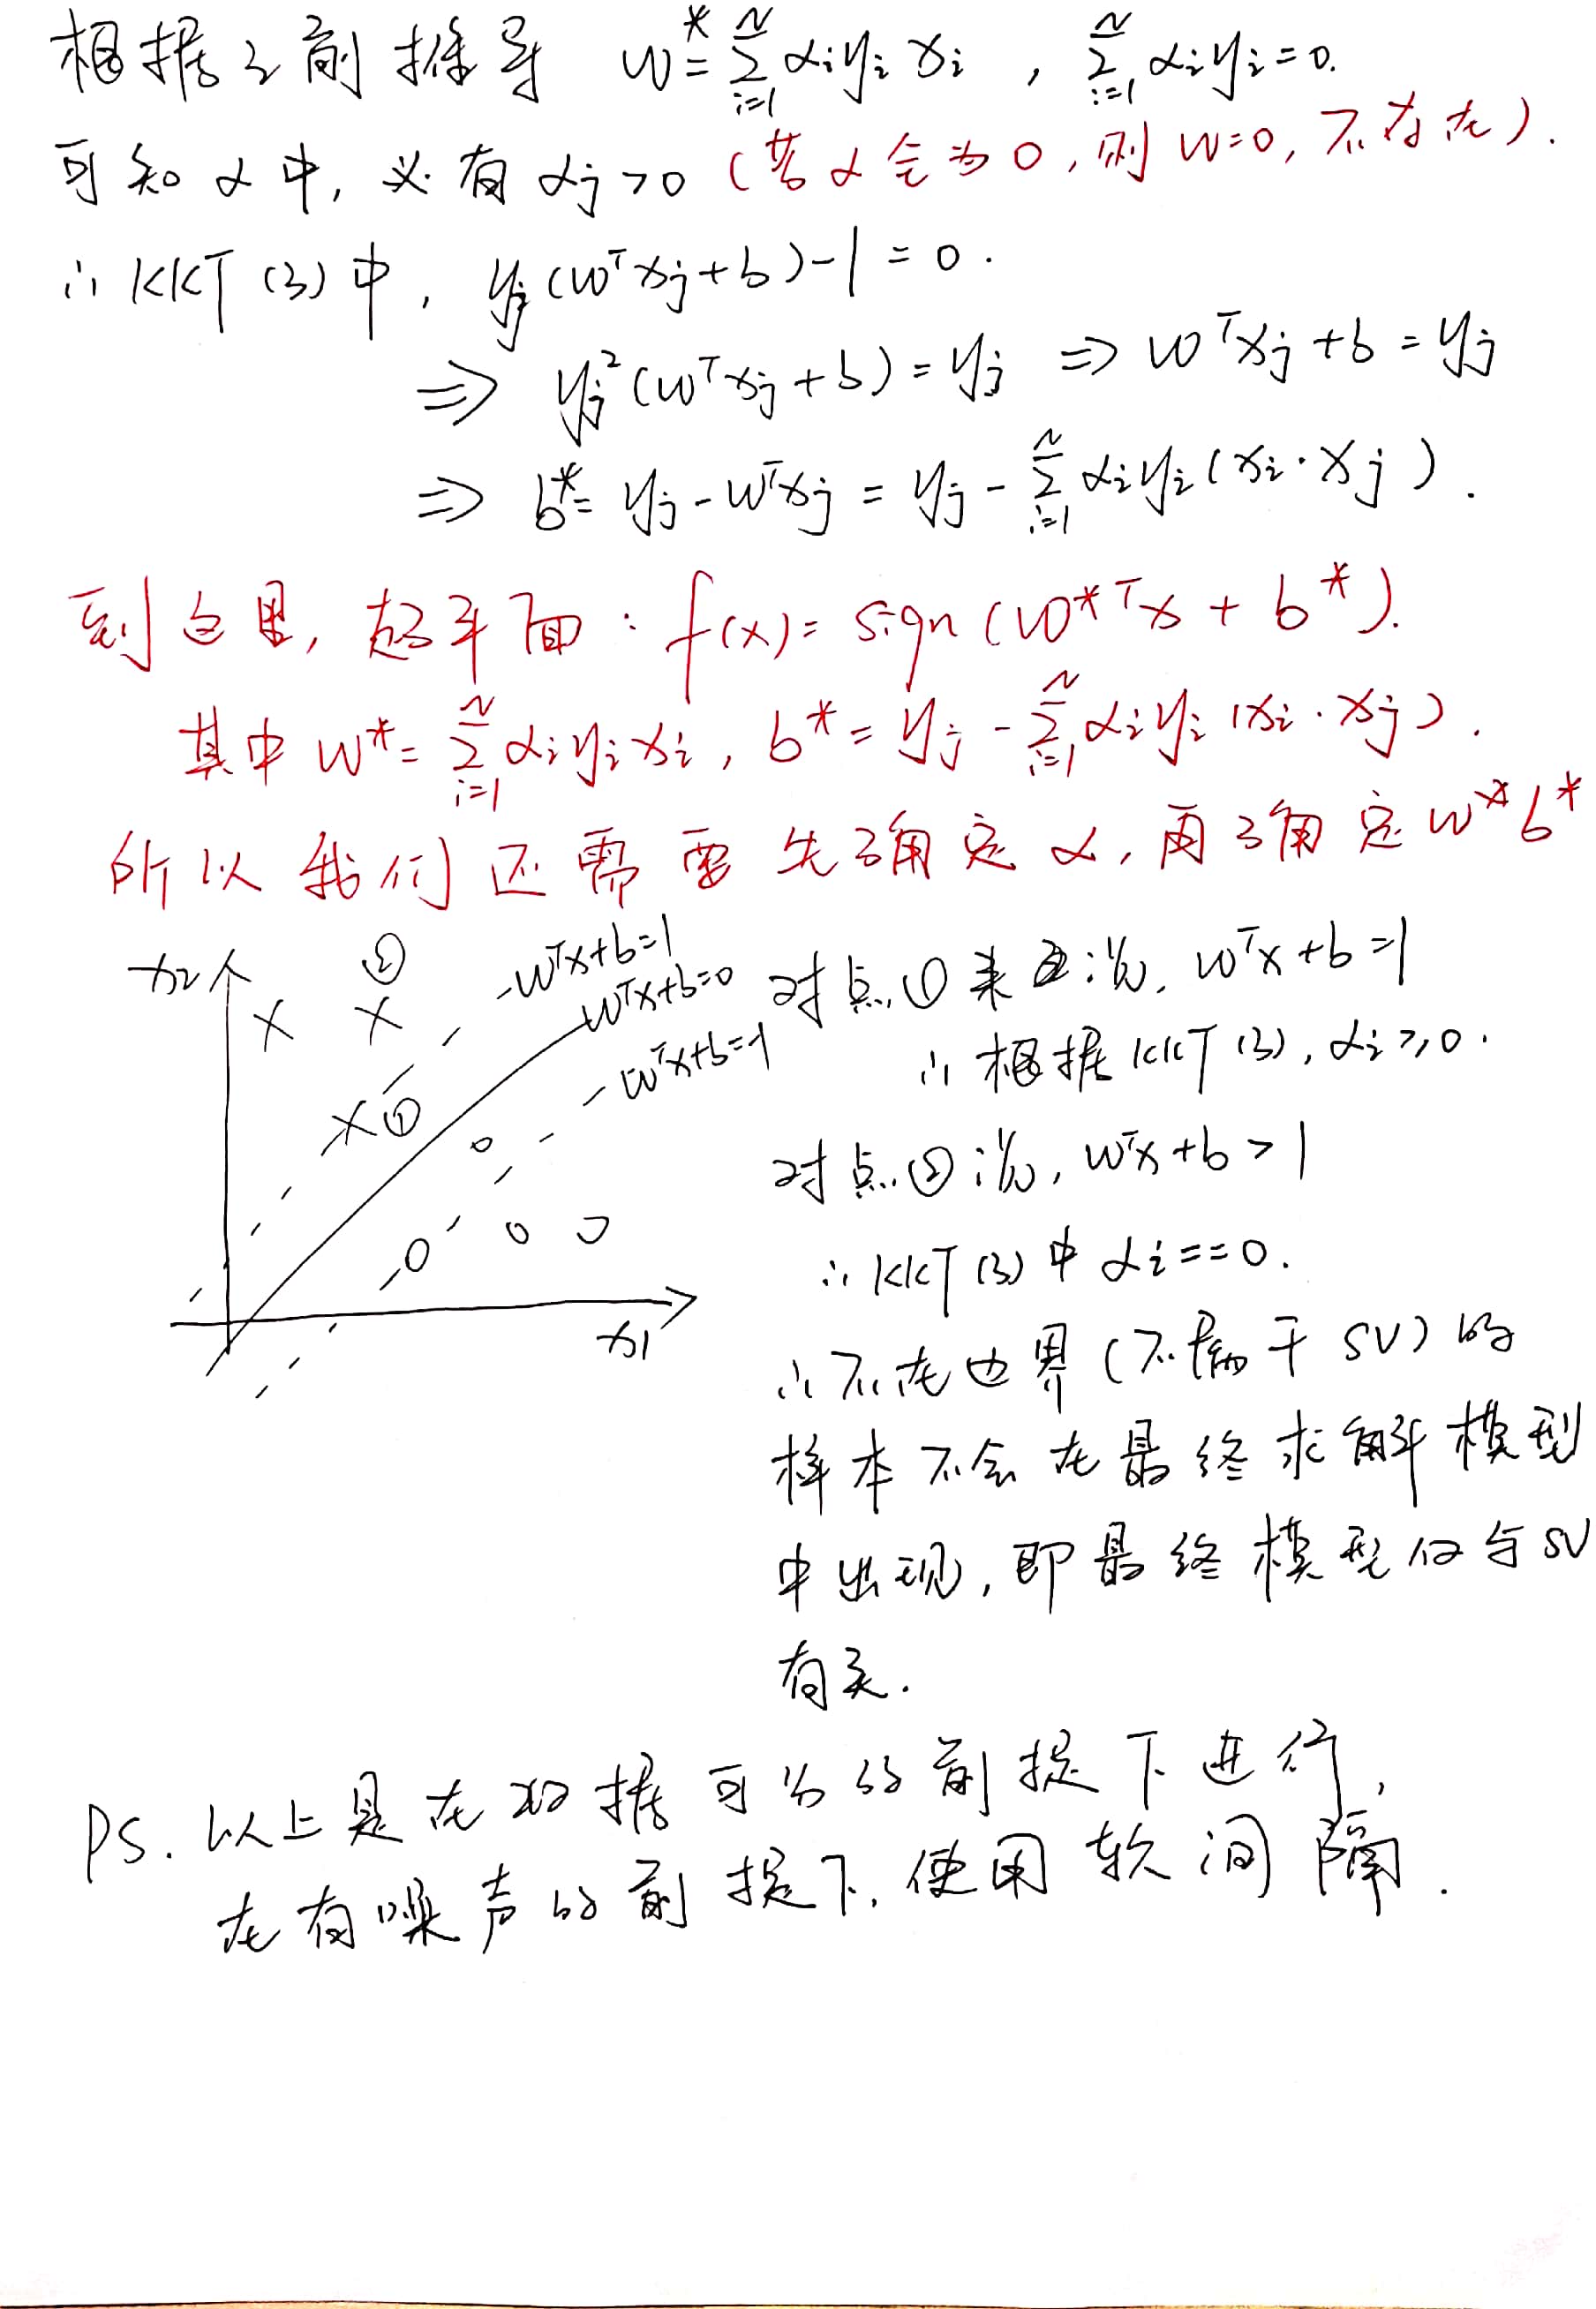 根据之前推导 w*=∑_{i=1}^{N} αiyixi , ∑_{i=1}^{N} αiyi=0.
可知 α 中, 必有 αj>0 (若 α 全为 0, 则 w=0, 不存在).
∴ KKT (3) 中, yj(wᵀxj+b)-1=0.
⇒ yj²(wᵀxj+b)=yj ⇒ wᵀxj+b=yj
⇒ b*=yj-wᵀxj=yj-∑_{i=1}^{N} αiyi(xi·xj).
到这里, 超平面: f(x)=sign(w*ᵀx+b*).
其中 w*=∑_{i=1}^{N} αiyixi, b*=yj-∑_{i=1}^{N} αiyi(xi·xj).
所以我们还需要先确定 α, 再确定 w*b*
x2
②
wᵀx+b=1
wᵀx+b=0
wᵀx+b=-1
①
x1
对点①来说, wᵀx+b=1
∴ 根据 KKT (3), αi≥0.
对点②说, wᵀx+b>1
∴ KKT (3) 中 αi==0.
∴ 不在边界 (不属于 SV) 的
样本不会在最终求解模型
中出现, 即最终模型仅与 SV
有关.
PS. 以上是在数据可分的前提下进行,
在有噪声的前提下, 使用软间隔.